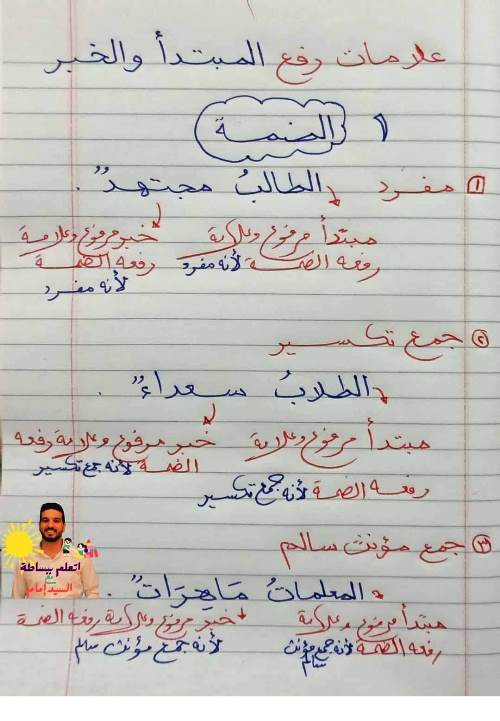 علامات رفع المبتدأ والخبر
١ الضمة
① مفرد الطالبُ مجتهدٌ.
مبتدأ مرفوع وعلامة رفعه الضمة لأنه مفرد
خبر مرفوع وعلامة رفعه الضمة لأنه مفرد
② جمع تكسير
الطلابُ سعداءٌ.
مبتدأ مرفوع وعلامة رفعه الضمة لأنه جمع تكسير
خبر مرفوع وعلامة رفعه الضمة لأنه جمع تكسير
③ جمع مؤنث سالم
المعلماتُ مَاهِرَاتٌ.
مبتدأ مرفوع وعلامة رفعه الضمة لأنه جمع مؤنث سالم
خبر مرفوع وعلامة رفعه الضمة لأنه جمع مؤنث سالم
اتعلم ببساطة
مع
السيد إمام